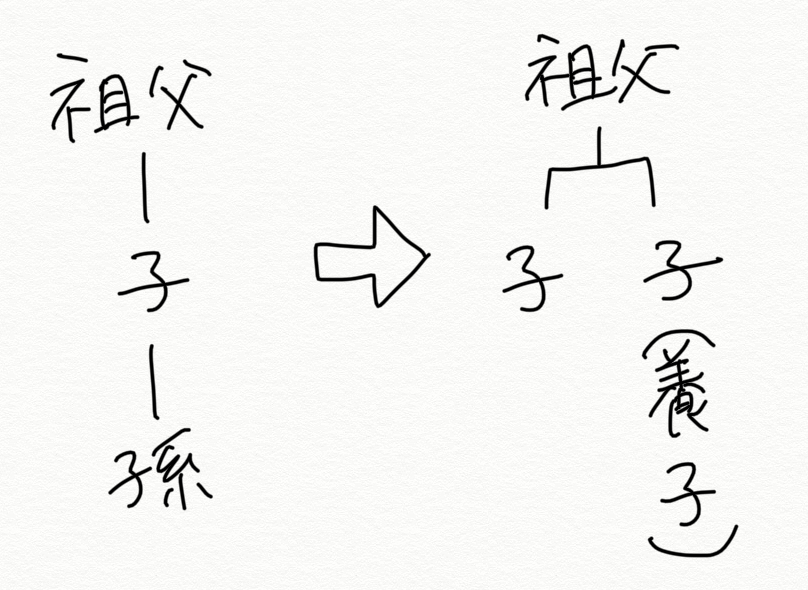 祖父
子
孫
祖父
子
子
(養子)